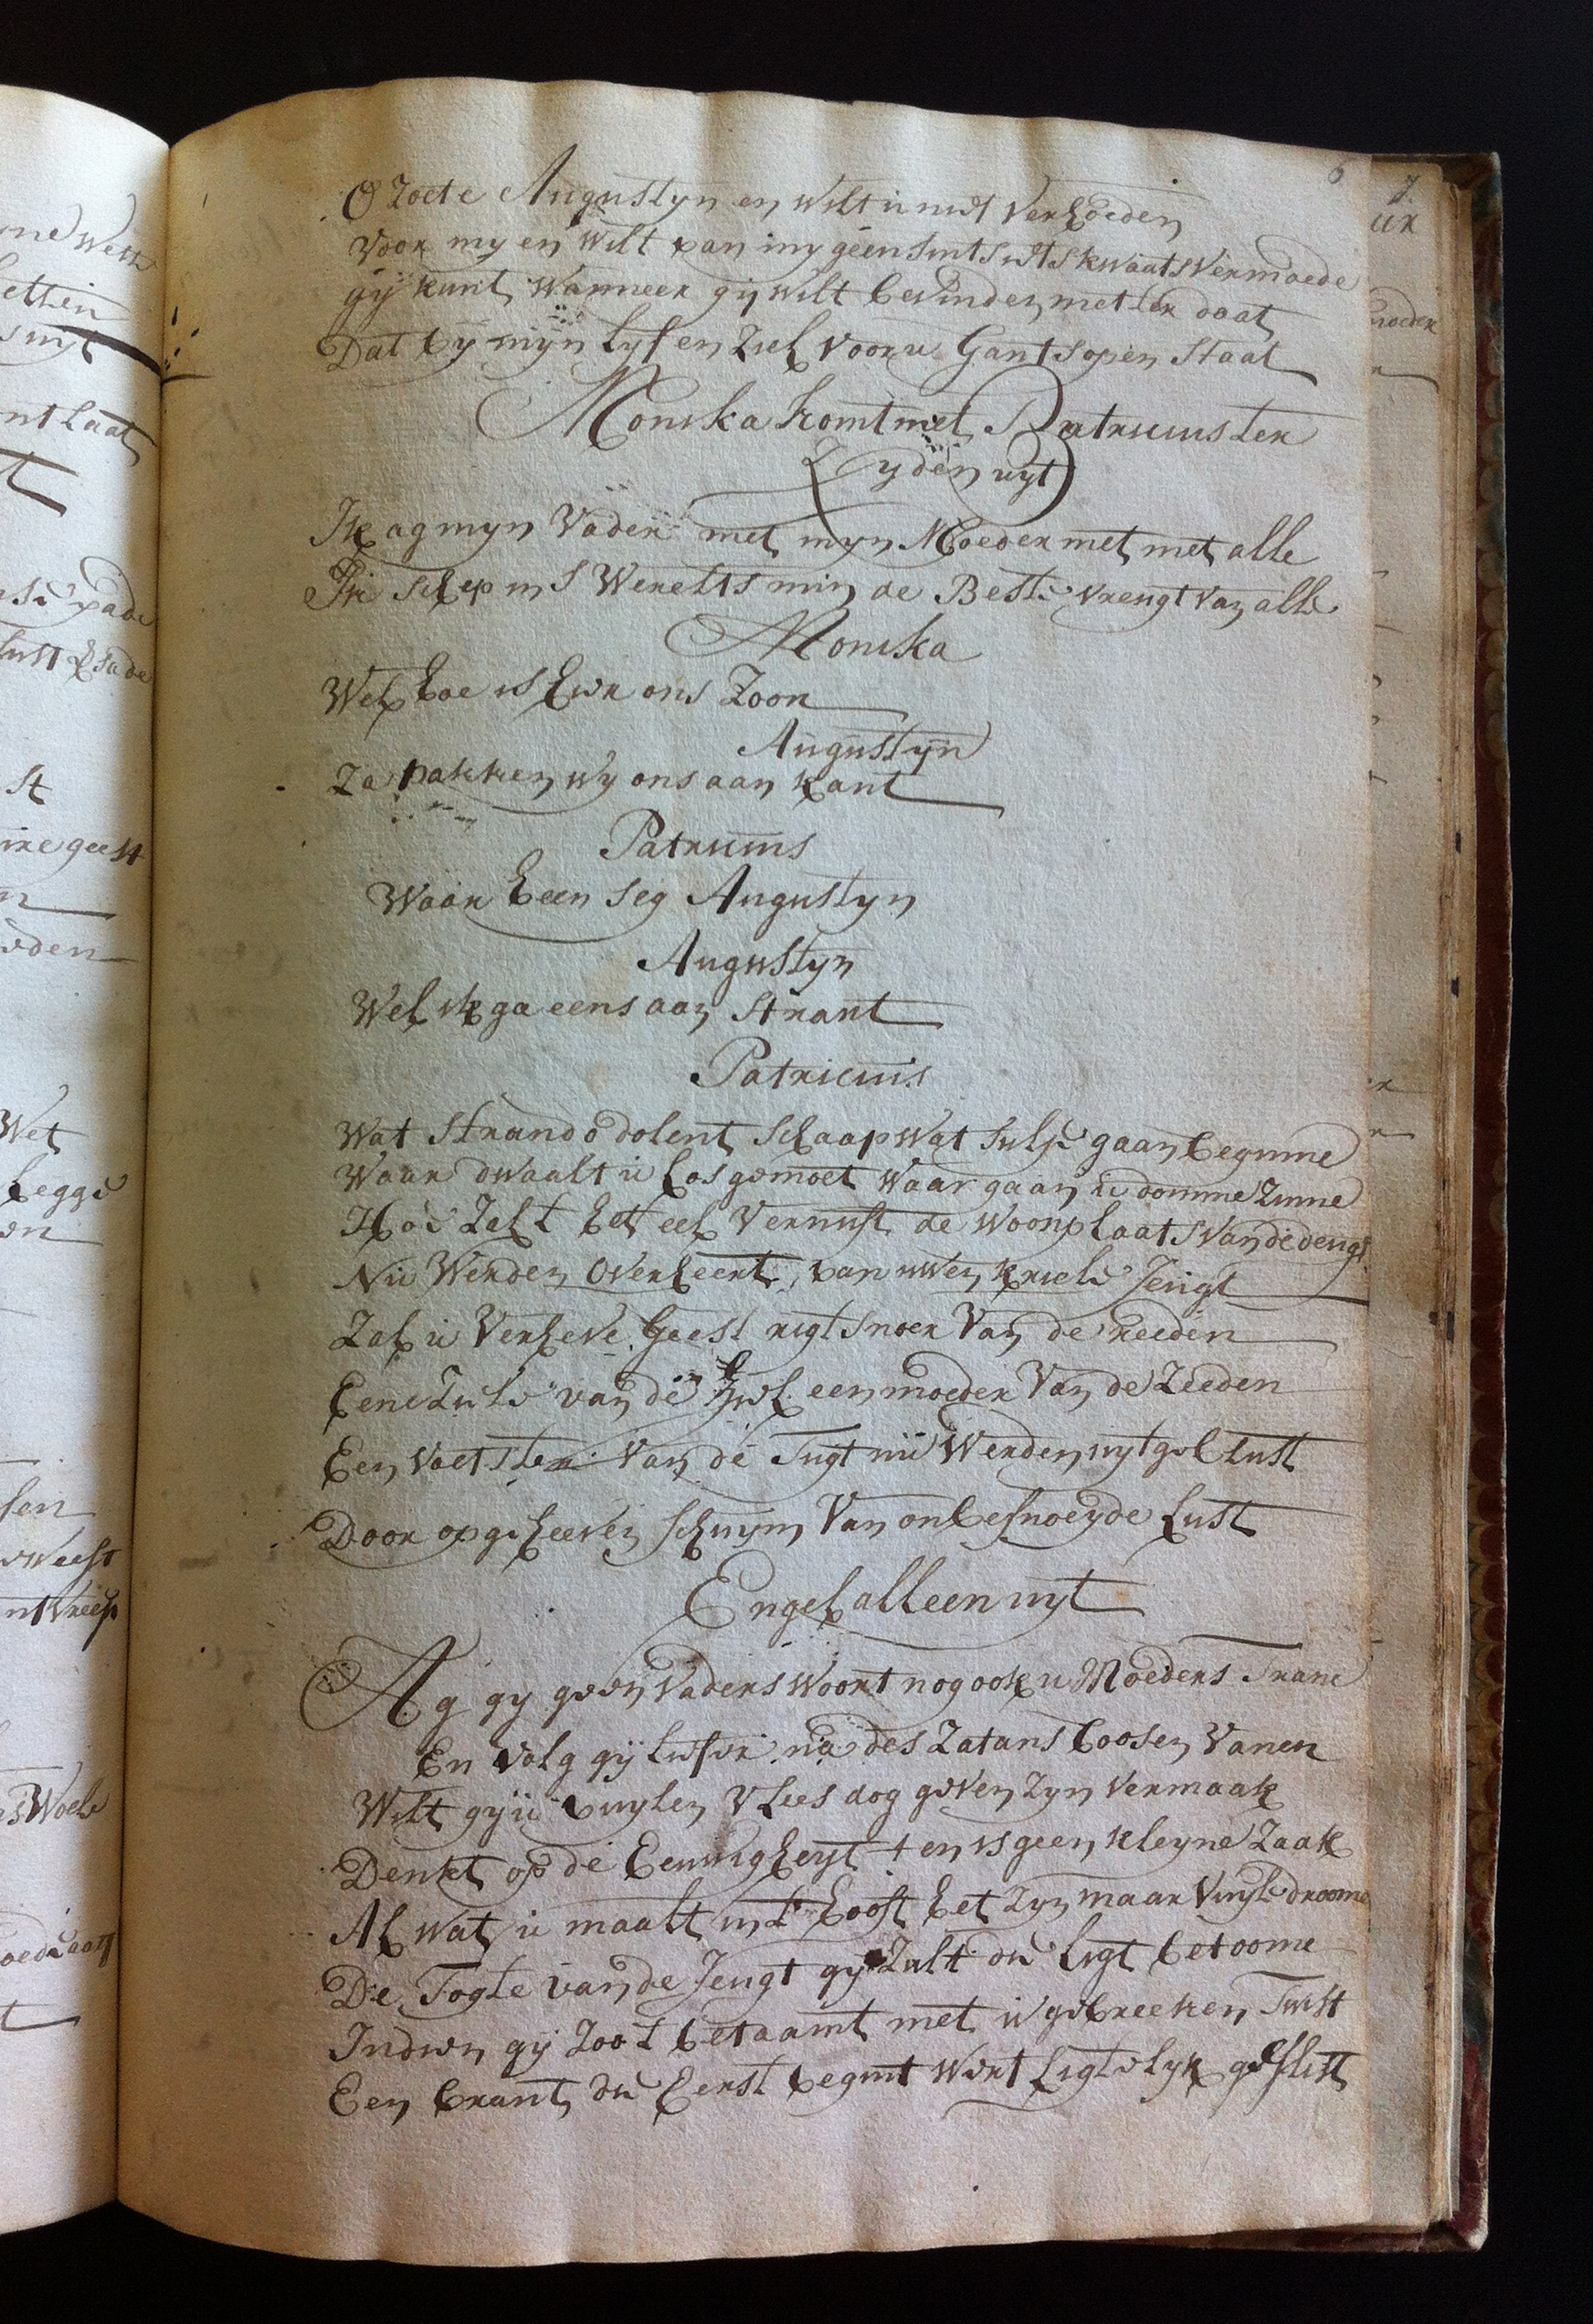 6
O Zoete Augustyn en wilt u niet verhoeden
Voor my en wilt van my geen sints iets kwaats vermoede
gij kunt wanneer gij wilt bevinden met ter daat
Dat bij mijn lyf en Ziel voor u Gants open staat
Monika komt met Patricius ter
Zyden uyt
Ik ag myn Vader met myn Moeder met met alle
Ik schep in S Werelts min de Beste vreugt van alle
Monika
Wel hoe is hier ons Zoon
Augustijn
Za pakken wy ons aan kant
Patricius
Waar heen seg Augustyn
Augustyn
Wel ik ga eens aan strant
Patricius
Wat strand o dolent schaap wat sulje gaan beginne
Waar dwaalt u los gemoet waar gaan u domme Zinne
Hoe Zelt het eel vernuft de woonplaats van de deugt
Nu Werden overheert van uwen kriele Jeugt
Zal u Verheve Geest rigtsnoer Van de reeden
Eene Zuile van de Ziel een moeder Van de Zeeden
Een voetster Van de Tugt nu Werden uytgeblust
Door opgeheeven schuym Van onbesnoeyde Lust
Engel alleen uyt
Ag gy geen Vaders woort nog ook u Moeders Trane
En volg gij liever na des Zatans boosen Vanen
Wilt gy u vuylen Vlees dog geven Zyn vermaak
Denkt op de Eeuwigheyt t en is geen kleyne Zaak
Al wat u maalt in t hooft het zyn maar Vuyle droome
De Togte van de Jeugt gij Zult die ligt betoome
Indien gij Zoo t betaamt met u gebreeken Twist
Een brant die Eerst begint wert ligtelyk geslist